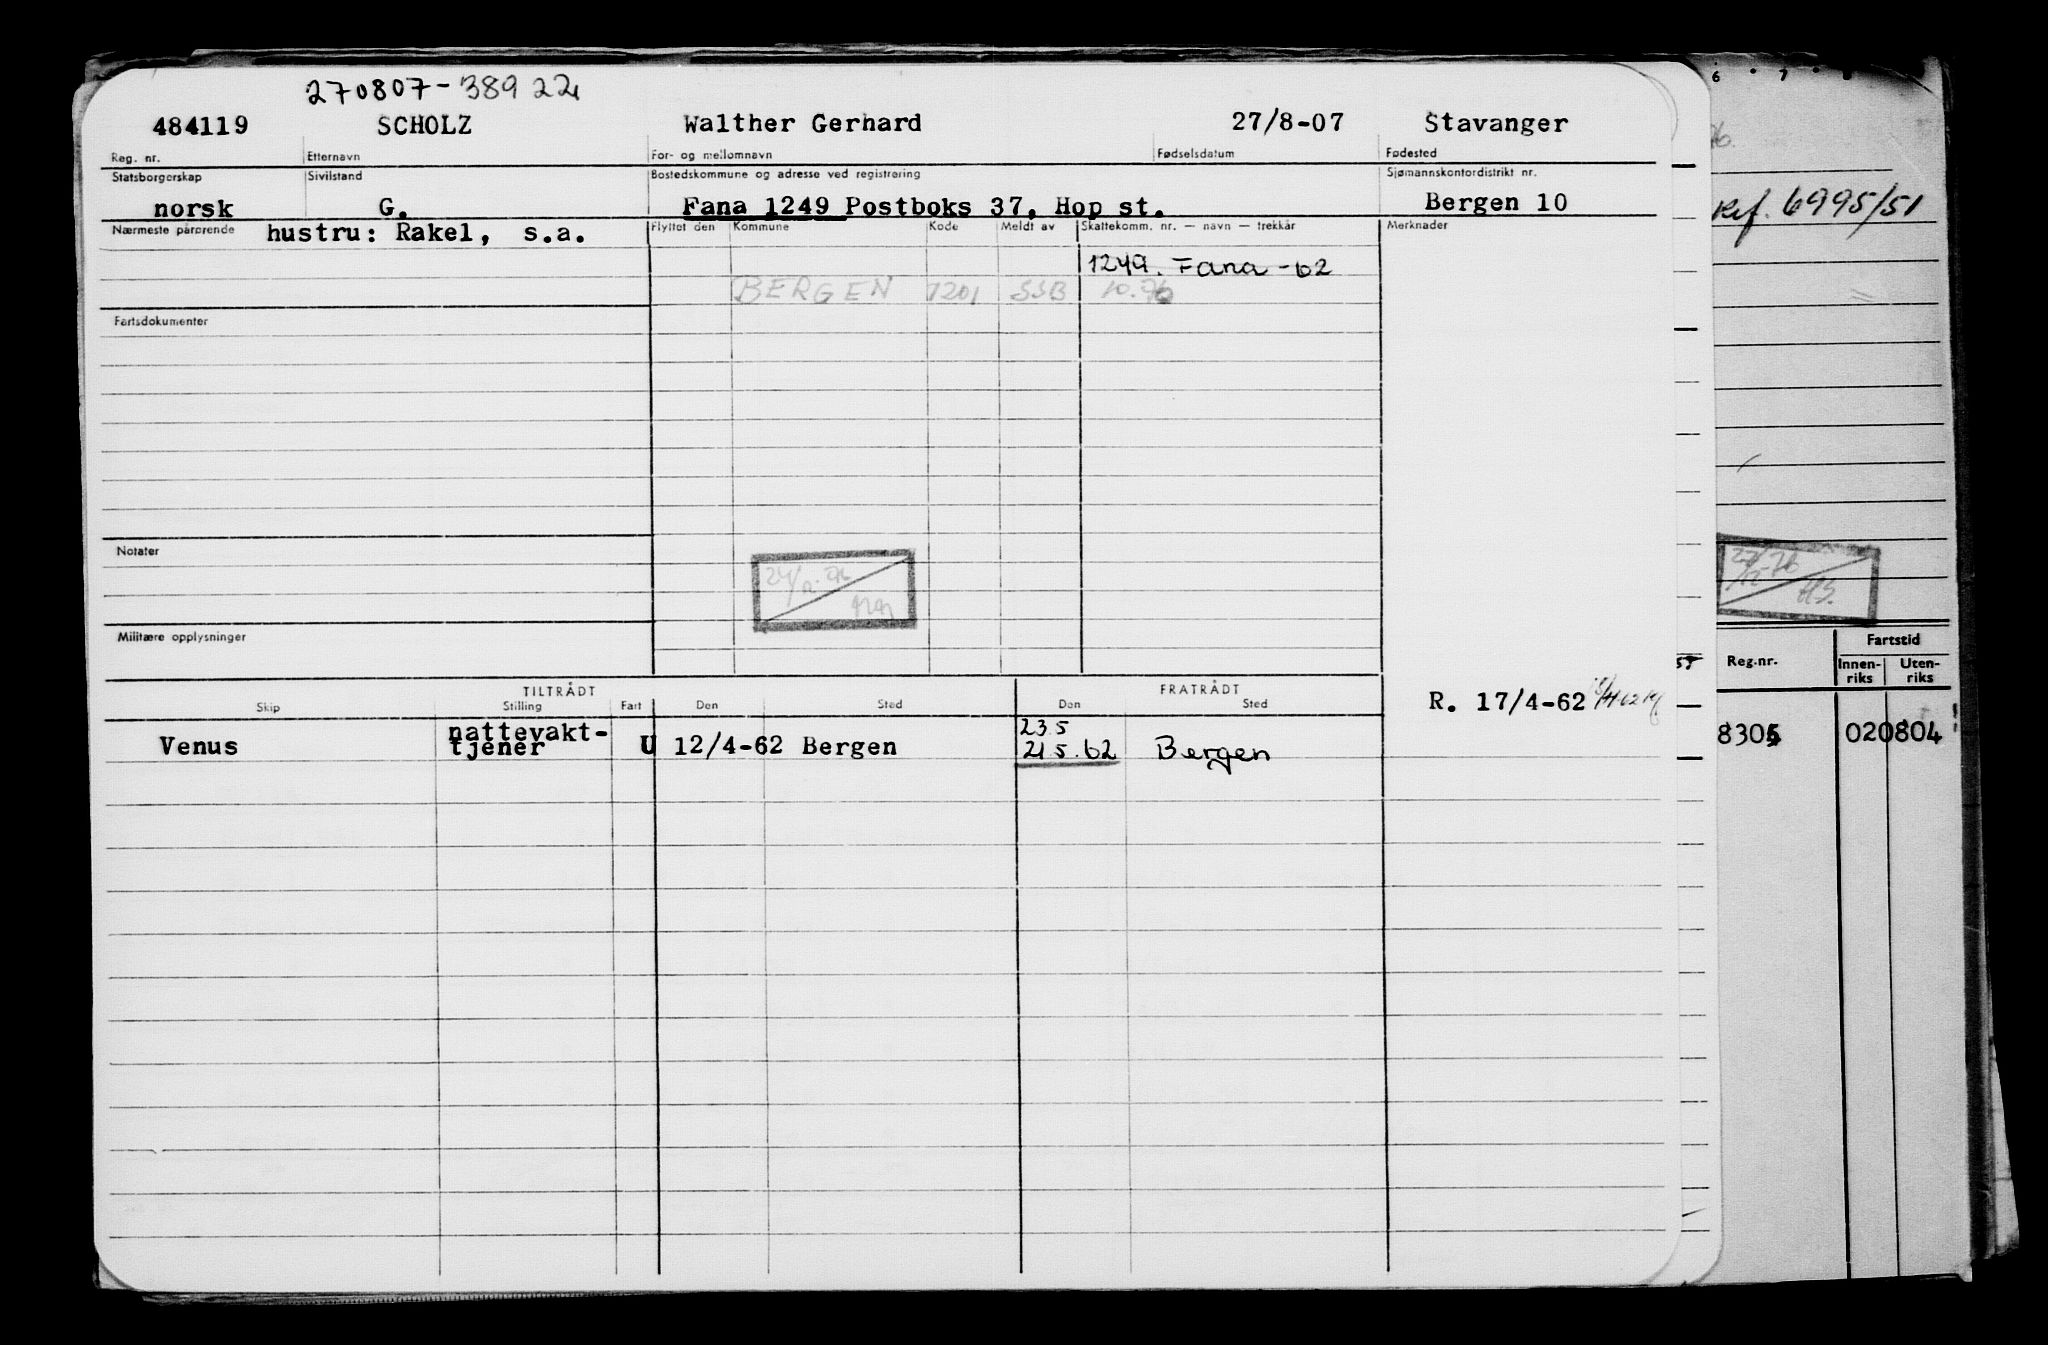 270807-38922
484119 SCHOLZ Walther Gerhard 27/8-07 Stavanger
Reg. nr. Etternavn For- og mellomnavn Fødselsdatum Fødested
Statsborgerskap Sivilstand Bostedskommune og adresse ved registrering Sjømannskontordistrikt nr.
norsk G. Fana 1249 Postboks 37, Hop st. Bergen 10
Nærmeste pårørende hustru: Rakel, s.a. Flyttet den Kommune Kode Meldt av Skattekomm. nr. — navn — trekkår Merknader
1249. Fana -62
BERGEN 1201 SSB 10.76
Fartsdokumenter
Notater
24/12-76
Militære opplysninger
TILTRÅDT FRATRÅDT
Skip Stilling Fart Den Sted Den Sted
R. 17/4-62
nattevakt- 23.5
Venus tjener U 12/4-62 Bergen 21.5.62 Bergen
6 7
Ref. 6995/51
27/12-76
HS.
Fartstid
Reg.nr. Innen- Uten-
riks riks
8305 020804